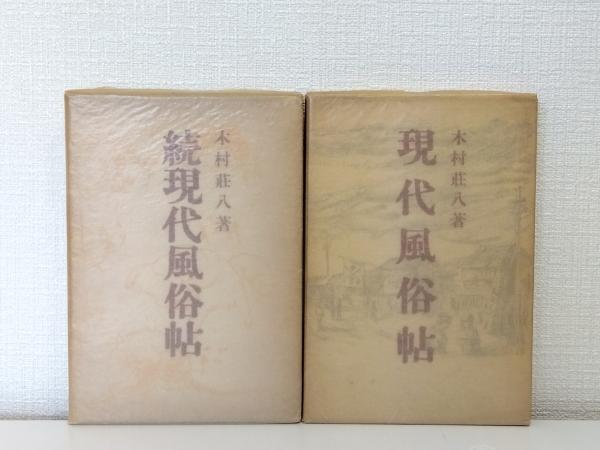 木村荘八著
現代風俗帖
木村荘八著
続現代風俗帖